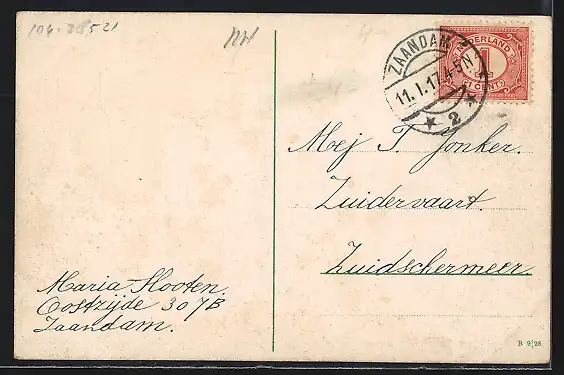 104.28521
NH
4-
NEDERLAND
1
CENT
ZAANDAM
11.1.17.4-5N
★ 2 ★
Mej T. Jonker.
Zuidervaart.
Zuidschermeer.
Maria Slooten.
Oostzijde 307B
Zaandam.
B 9/28